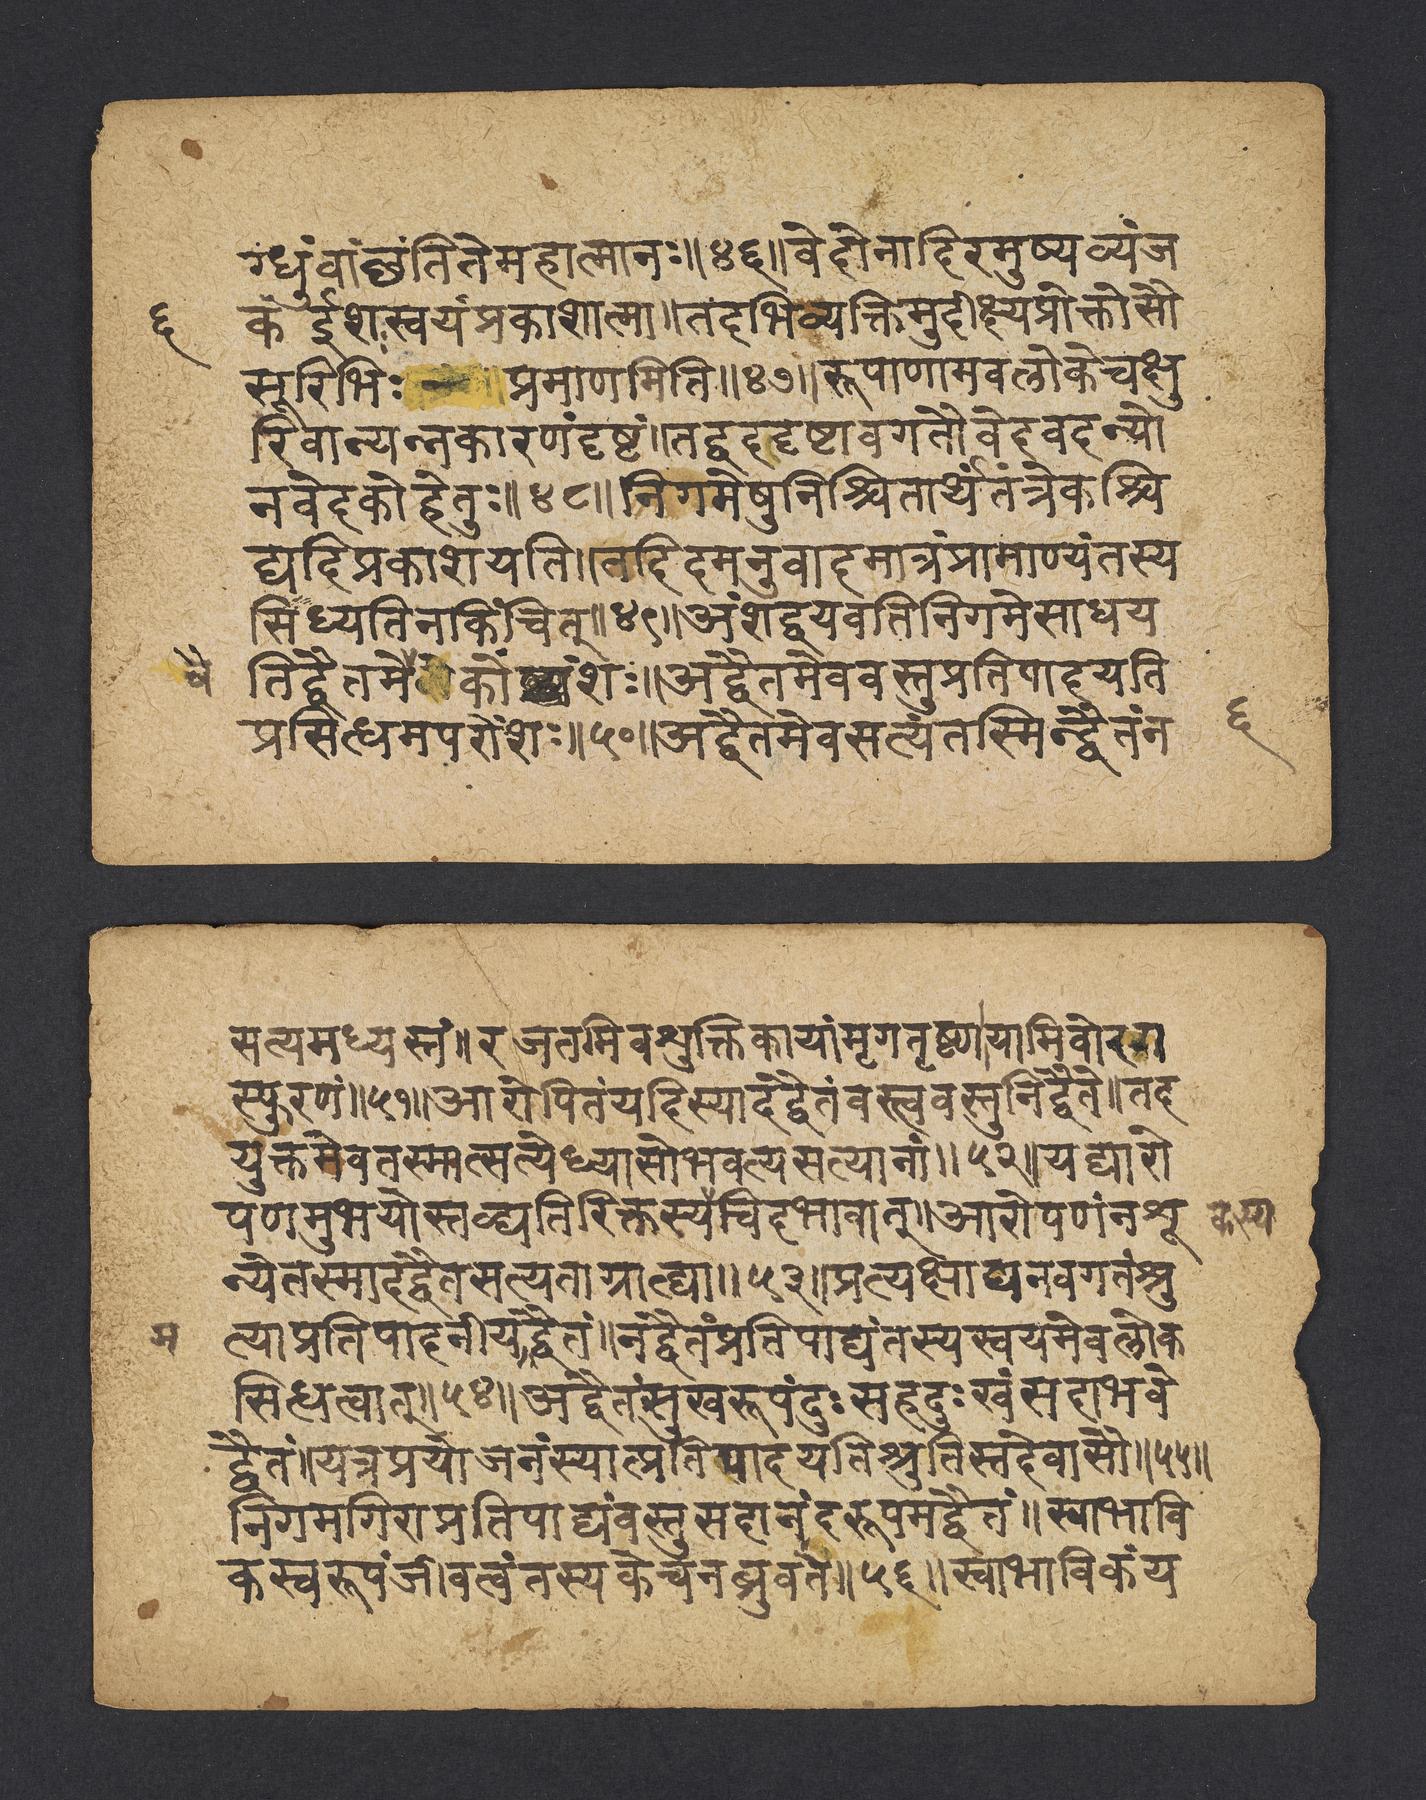 ग्धुंवांछंतितेमहात्मानः॥४६॥वेदोनादिरमुष्यव्यंज
६
कं ईशःस्वयंप्रकाशात्मा॥तदभिव्यक्तिमुदीक्ष्यप्रोक्तोसौ
सूरिभिः प्रमाणमिति॥४७॥रूपाणामवलोकेचक्षु
रिवान्यन्नकारणंदृष्टं॥तद्वददृष्टावगतौवेदवदन्यो
नवेदकोहेतुः॥४८॥निगमेषुनिश्चितार्थंतंत्रेकश्चि
द्यदिप्रकाशयति॥तदिदमनुवादमात्रंप्रामाण्यंतस्य
सिध्यतिनकिंचित्॥४९॥अंशद्वयवतिनिगमेसाधय
वै
तिद्वैतमे कोंशः॥अद्वैतमेववस्तुप्रतिपादयति
प्रसिद्धमपरोंशः॥५०॥अद्वैतमेवसत्यंतस्मिन्द्वैतंन
६
सत्यमध्यस्तं॥रजतमिवशुक्तिकायांमृगतृष्णायामिवोदका
स्फुरणं॥५१॥आरोपितंयदिस्यादद्वैतंवस्त्ववस्तुनिद्वैते॥तद
युक्तमेवतस्मात्सत्येध्यासोभवत्यसत्यानां॥५२॥यद्यारो
पणमुभयोस्तद्व्यतिरिक्तस्यचिदभावात्॥आरोपणंनशू
कस्य
न्येतस्मादद्वैतसत्यताग्राह्या॥५३॥प्रत्यक्षाद्यनवगतंश्रु
म
त्याप्रतिपादनीयद्वैतं॥नद्वैतंप्रतिपाद्यंतस्यस्वयमेवलोक
सिद्धत्वात्॥५४॥अद्वैतंसुखरूपंदुःसहदुःखंसदाभवे
द्वैतं॥यत्रप्रयोजनंस्यात्प्रतिपादयतिश्रुतिस्तदेवासौ॥५५॥
निगमगिराप्रतिपाद्यंवस्तुसदानंदरूपमद्वैतं॥स्वाभावि
कस्वरूपंजीवत्वंतस्यकेचनब्रुवते॥५६॥स्वाभाविकंय